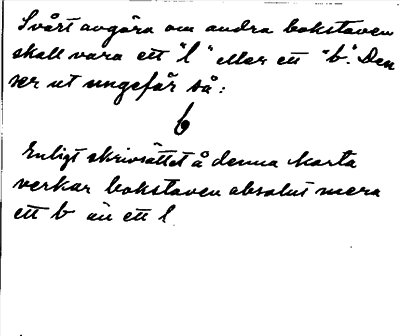 Svårt avgöra om andra bokstaven
skall vara ett "l" eller ett "b". Den
ser ut ungefär så:
b
Enligt skrivsättet å denna karta
verkar bokstaven absolut mera
ett b än ett l.